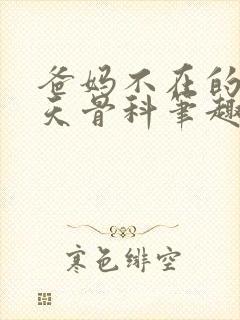 爸妈不在的
天骨科笔趣
寒色绯空